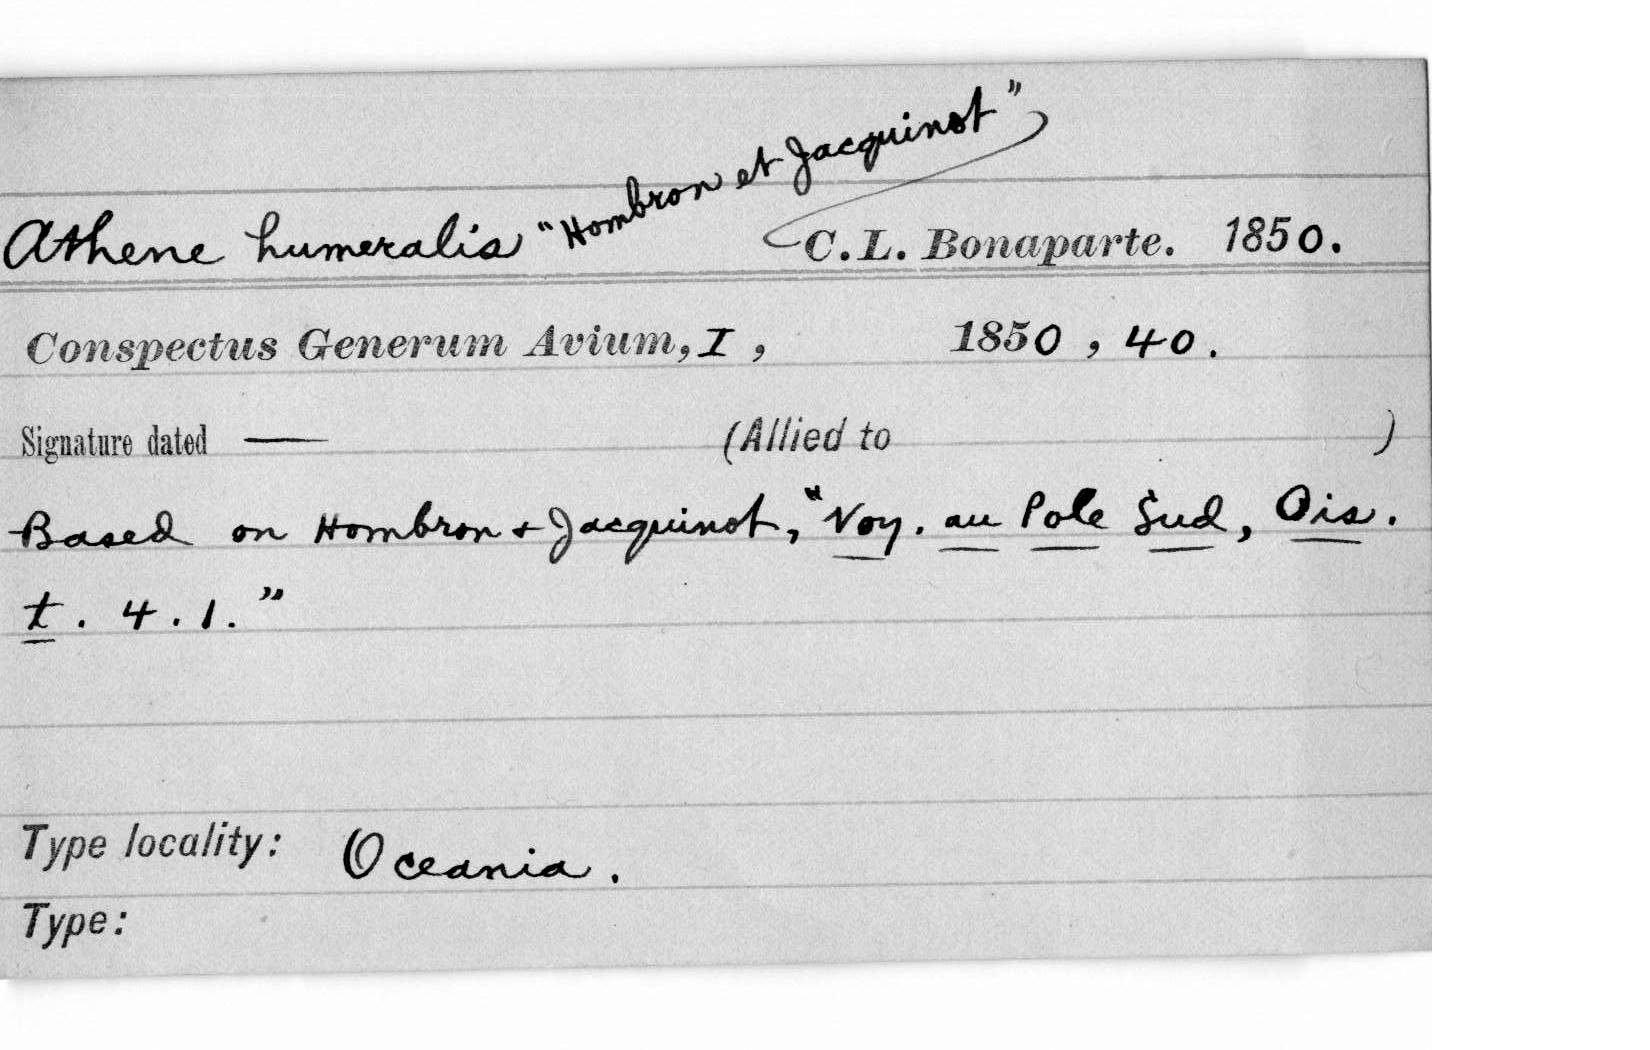 Athene humeralis "Hombron et Jacquinot" C.L. Bonaparte. 1850.
Conspectus Generum Avium, I, 1850, 40.
Signature dated — (Allied to )
Based on Hombron + Jacquinot, "Voy. au Pole Sud, Ois.
t. 4.1."
Type locality: Oceania.
Type: